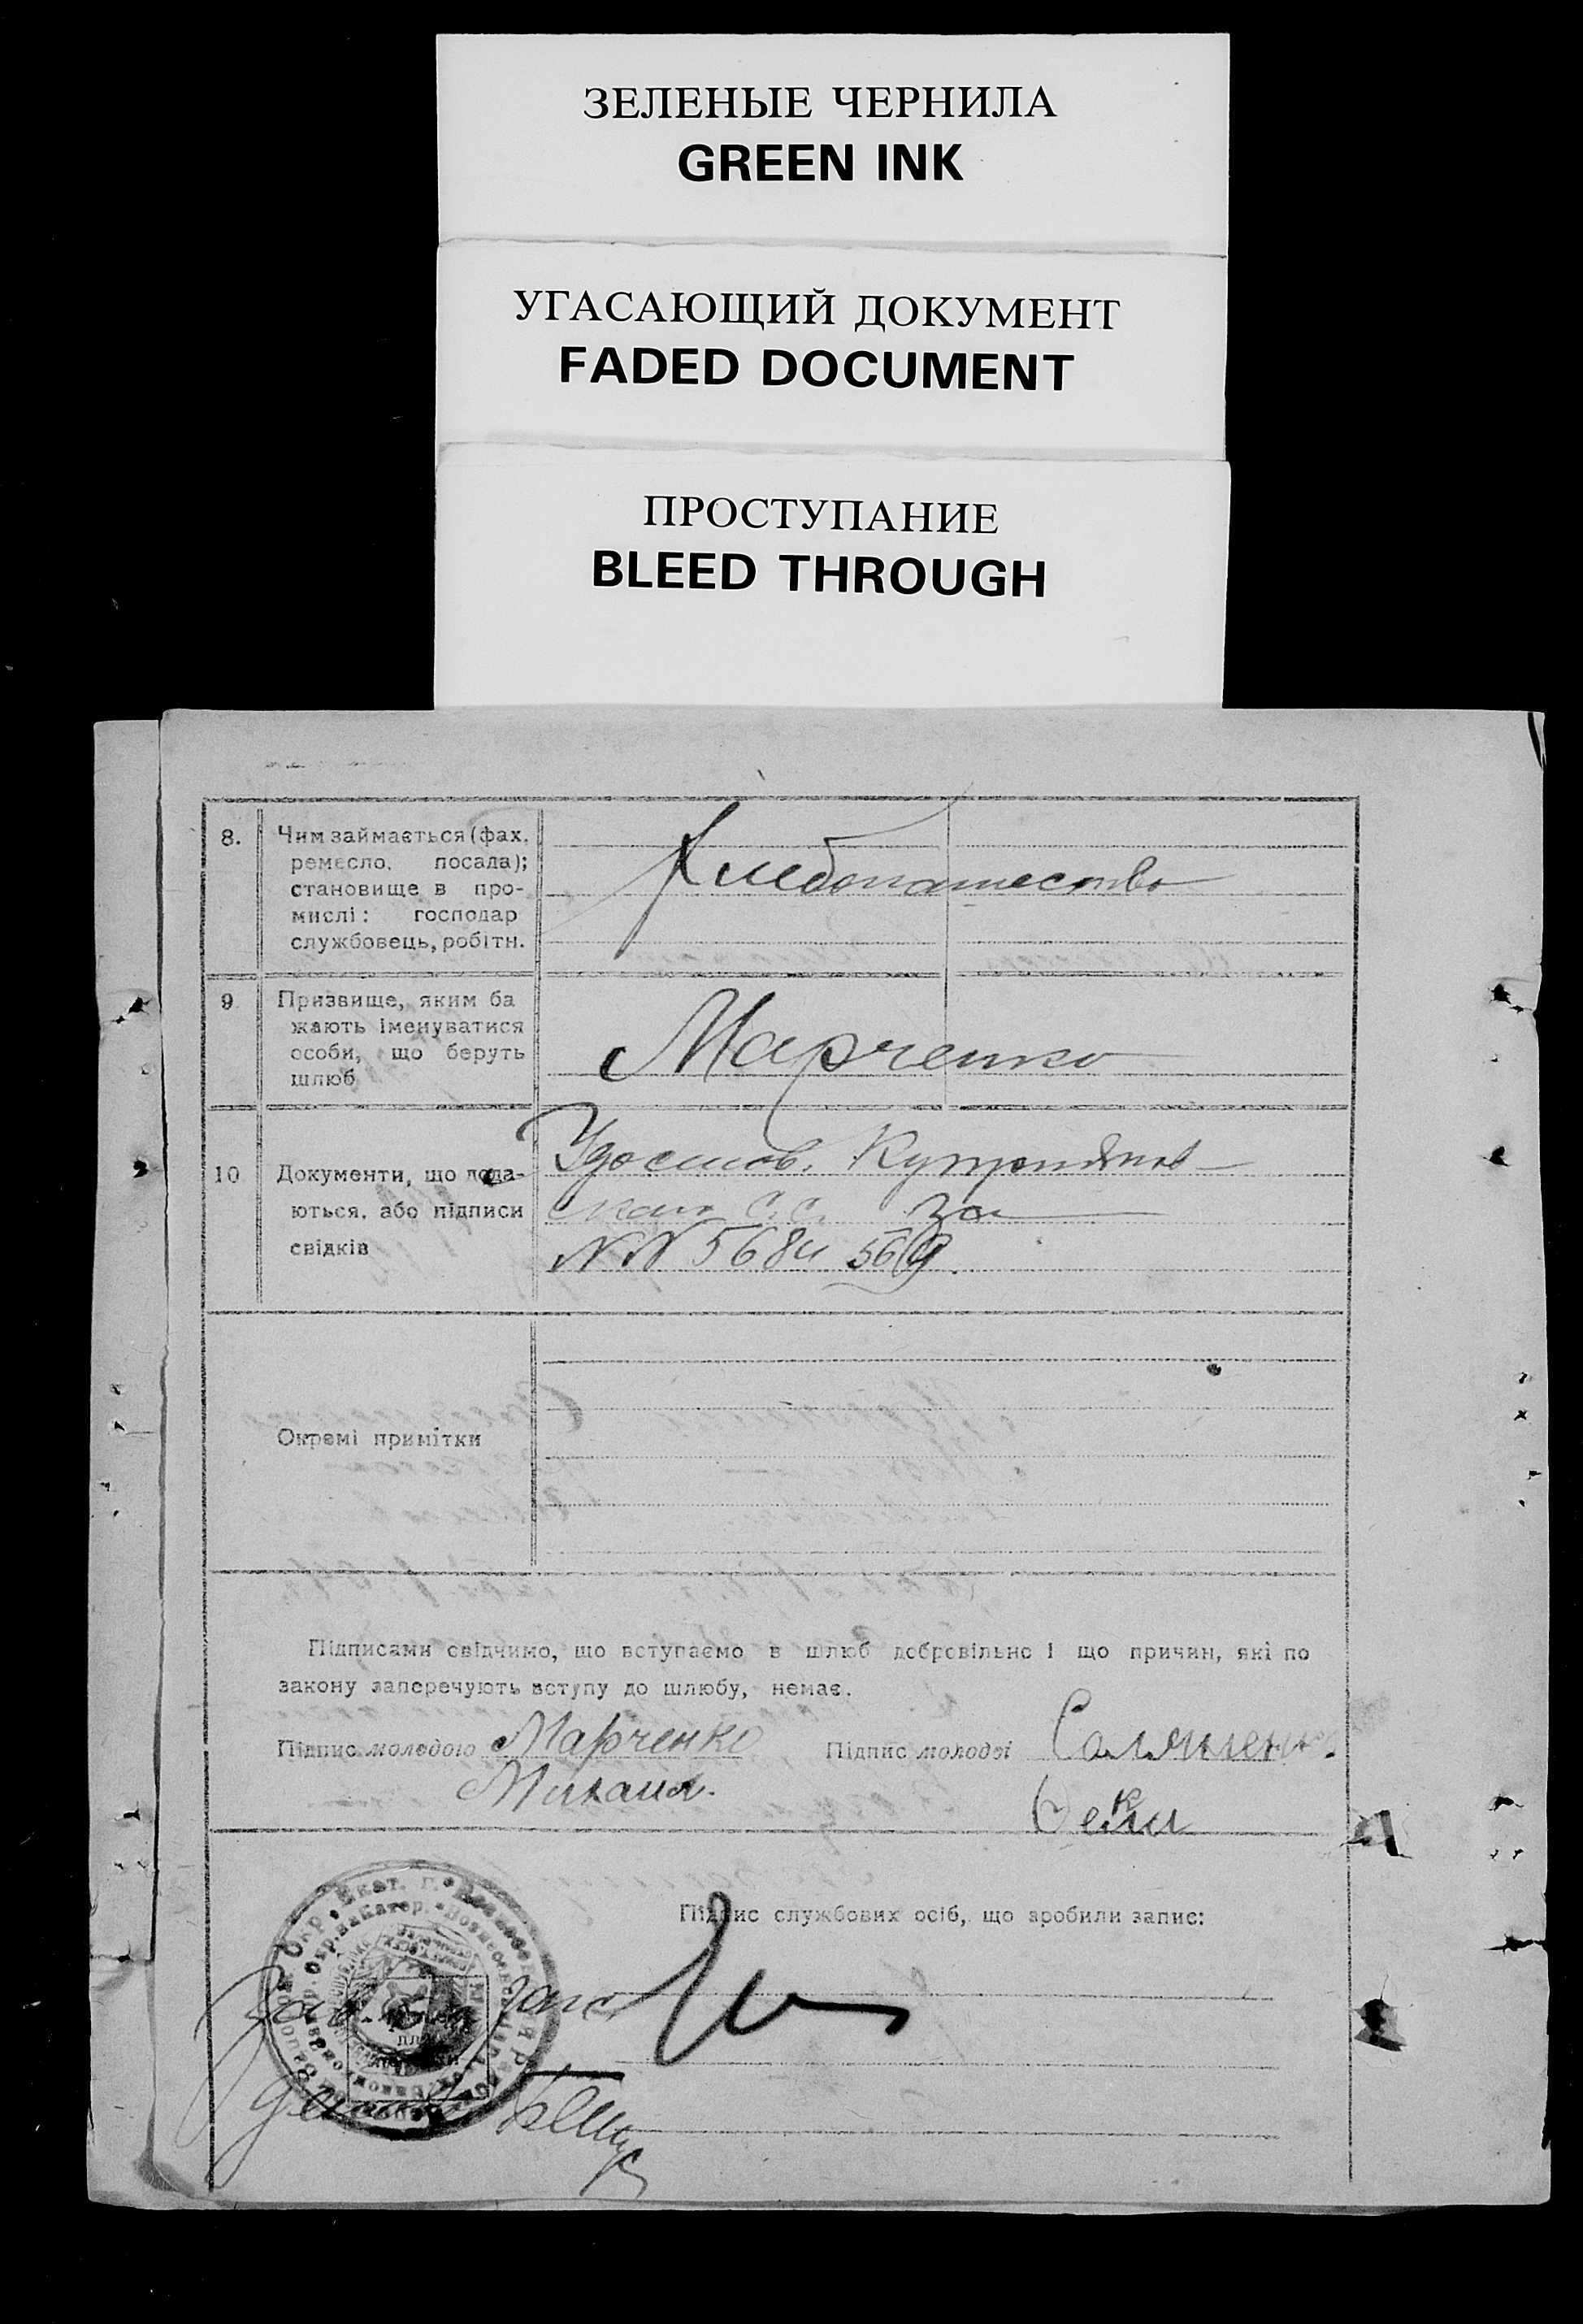 ЗЕЛЕНЫЕ ЧЕРНИЛА
GREEN INK
УГАСАЮЩИЙ ДОКУМЕНТ
FADED DOCUMENT
ПРОСТУПАНИЕ
BLEED THROUGH
8.
Чим займається (фах,
ремесло, посада);
становище в про-
мислі: господар
службовець, робітн.
Хлебопашество
9
Призвище, яким ба
жають іменуватися
особи, що беруть
шлюб
Марченко
10
Документи, що пода-
ються, або підписи
свідків
Удостов.
С.С. за
NN 568 и 569.
Окремі примітки
Підписами свідчимо, що вступаємо в шлюб добровільно і що причин, які по
закону заперечують вступу до шлюбу, немає.
Підпис молодого Марченко
Михаил.
Підпис молодої
Підпис службових осіб, що зробили запис: